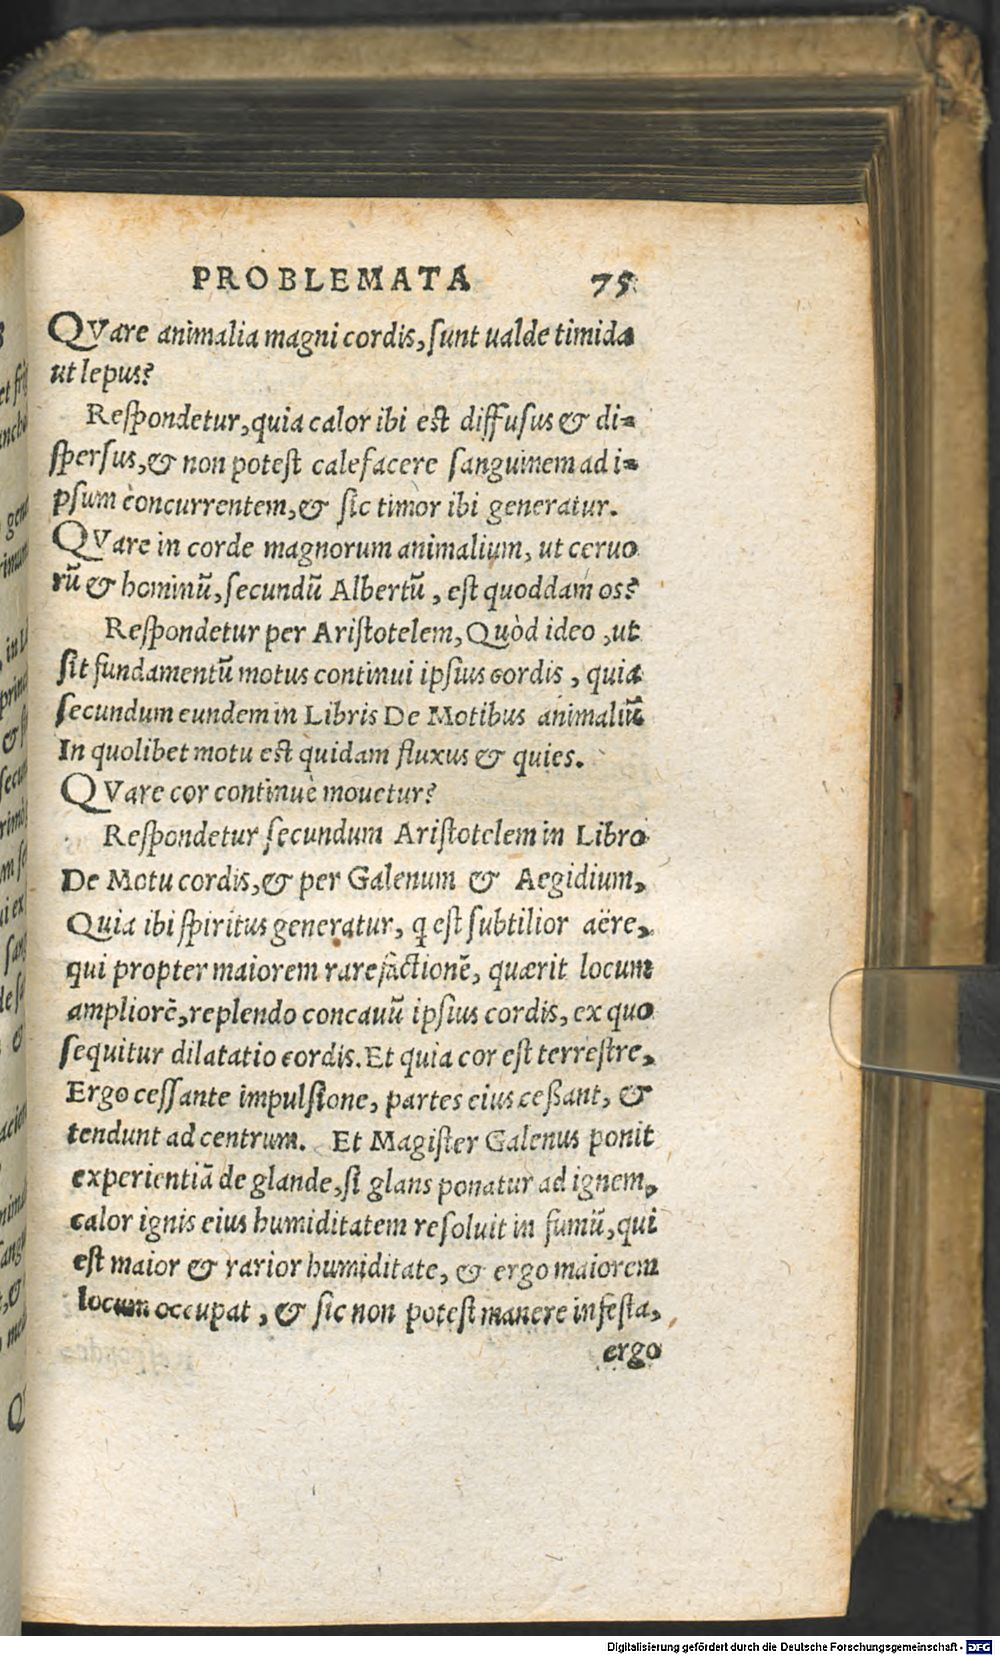 PROBLEMATA 75
QVare animalia magni cordis, sunt ualde timida
ut lepus?
Respondetur, quia calor ibi est diffusus & di-
spersus, & non potest calefacere sanguinem ad i-
psum concurrentem, & sic timor ibi generatur.
QVare in corde magnorum animalium, ut ceruo
rū & hominū, secundū Albertū, est quoddam os?
Respondetur per Aristotelem, Quòd ideo, ut
sit fundamentū motus continui ipsius cordis, quia
secundum eundem in Libris De Motibus animaliū
In quolibet motu est quidam fluxus & quies.
QVare cor continuè mouetur?
Respondetur secundum Aristotelem in Libro
De Motu cordis, & per Galenum & Aegidium,
Quia ibi spiritus generatur, q est subtilior aëre,
qui propter maiorem rarefactionē, quærit locum
ampliorē, replendo concauū ipsius cordis, ex quo
sequitur dilatatio cordis. Et quia cor est terrestre,
Ergo cessante impulsione, partes eius cessant, &
tendunt ad centrum. Et Magister Galenus ponit
experientiā de glande, si glans ponatur ad ignem,
calor ignis eius humiditatem resoluit in fumū, qui
est maior & rarior humiditate, & ergo maiorem
locum occupat, & sic non potest manere in festa,
ergo
Digitalisierung gefördert durch die Deutsche Forschungsgemeinschaft - DFG